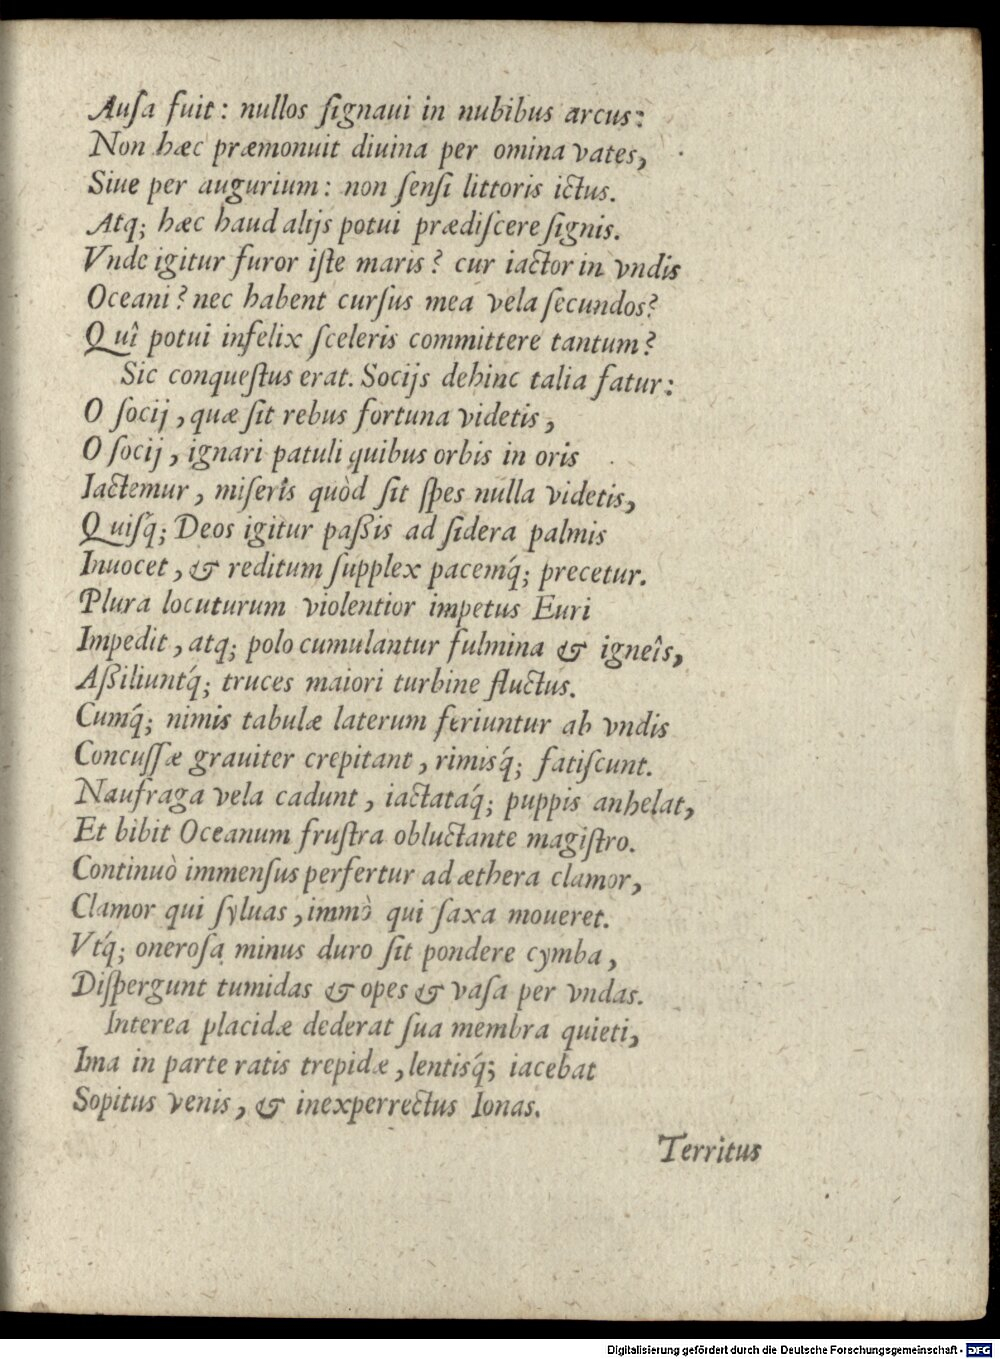 Auſa fuit: nullos ſignaui in nubibus arcus:
Non hæc præmonuit diuina per omina vates,
Siue per augurium: non ſenſi littoris ictus.
Atq; hæc haud alijs potui prædiſcere ſignis.
Vnde igitur furor iſte maris? cur iactor in vndis
Oceani? nec habent curſus mea vela ſecundos?
Quî potui infelix ſceleris committere tantum?
Sic conqueſtus erat. Socijs dehinc talia fatur:
O ſocij, quæ ſit rebus fortuna videtis,
O ſocij, ignari patuli quibus orbis in oris
Iactemur, miſerîs quòd ſit ſpes nulla videtis,
Quiſq́; Deos igitur paßis ad ſidera palmis
Inuocet, & reditum ſupplex pacemq́; precetur.
Plura locuturum violentior impetus Euri
Impedit, atq; polo cumulantur fulmina & igneîs,
Aßiliuntq́; truces maiori turbine fluctus.
Cumq́; nimis tabulæ laterum feriuntur ab vndis
Concuſſæ grauiter crepitant, rimisq́; fatiſcunt.
Naufraga vela cadunt, iactataq́; puppis anhelat,
Et bibit Oceanum fruſtra obluctante magiſtro.
Continuò immenſus perfertur ad æthera clamor,
Clamor qui ſyluas, immò qui ſaxa moueret.
Vtq́; oneroſa minus duro ſit pondere cymba,
Diſpergunt tumidas & opes & vaſa per vndas.
Interea placidæ dederat ſua membra quieti,
Ima in parte ratis trepidæ, lentisq́; iacebat
Sopitus venis, & inexperrectus Ionas.
Territus
Digitalisierung gefördert durch die Deutsche Forschungsgemeinschaft - DFG